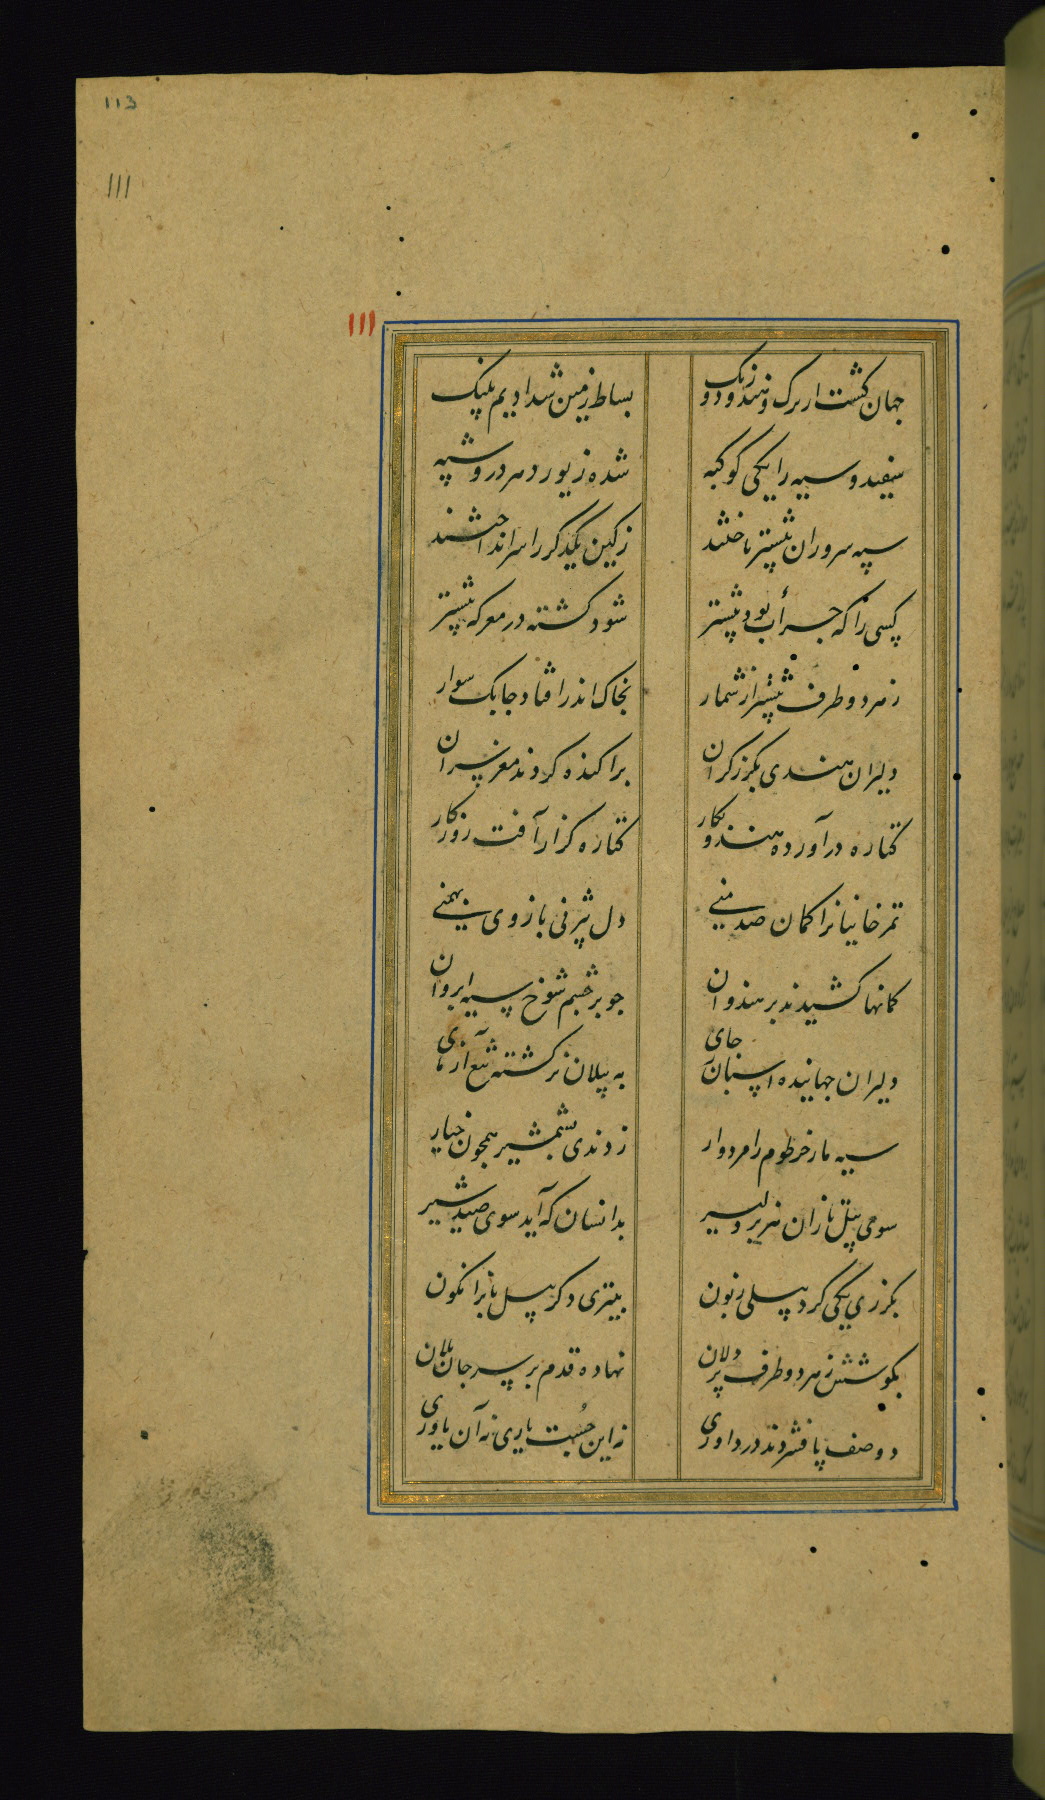 113
111
111
جهان کشت از ترک و هندو دو رنک
بساط زمین شد ادیم پلنک
سفید و سیه را یکی کوکبه
شده زیور دهر در و شبه
سپه سروران پیشتر تاختند
ز کین یکدکر را سر انداختند
کسی را که جرأت بود پیشتر
شود کشته در معرکه پیشتر
ز هر دو طرف بیشتر از شمار
بخاک اندر افتاد جابک سوار
دلیران هندی بکرز کران
براکنده کردند مغز سران
کتاره درآورده هندو بکار
کتاره کزار آفت روزکار
تمرخانیانرا کمان صد منی
دل شیر نی بازوی بهمنی
کمانها کشیدند بر هندوان
جو بر خشم شوخ سیه ابروان
دلیران جهانیده اسبان ز جای
به پیلان نر کشته تیغ آزمای
سیه مار خرطوم را مردوار
زدندی بشمشیر همجون خیار
سوی پیل تازان هزبر دلیر
بدانسان که آید سوی صید شیر
بکرزی یکی کرد پیلی زبون
بتیزی دکر پیل بانرا نکون
بکوشش ز هر دو طرف پر دلان
نهاده قدم بر سر جان یلان
دو صف پا فشردند در داوری
نه این جُست یاری نه آن یاوری